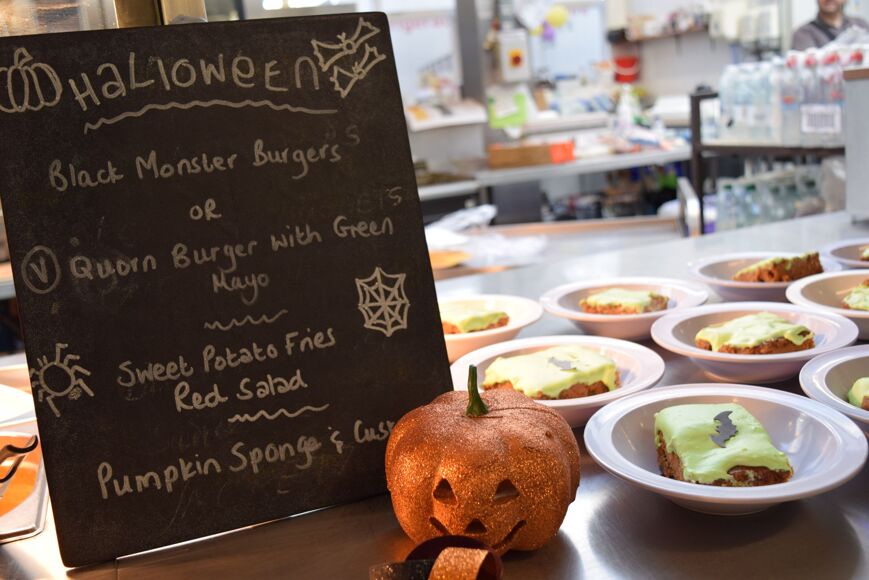 Halloween
Black Monster Burgers
OR
V Quorn Burger with Green
Mayo
Sweet Potato Fries
Red Salad
Pumpkin Sponge &